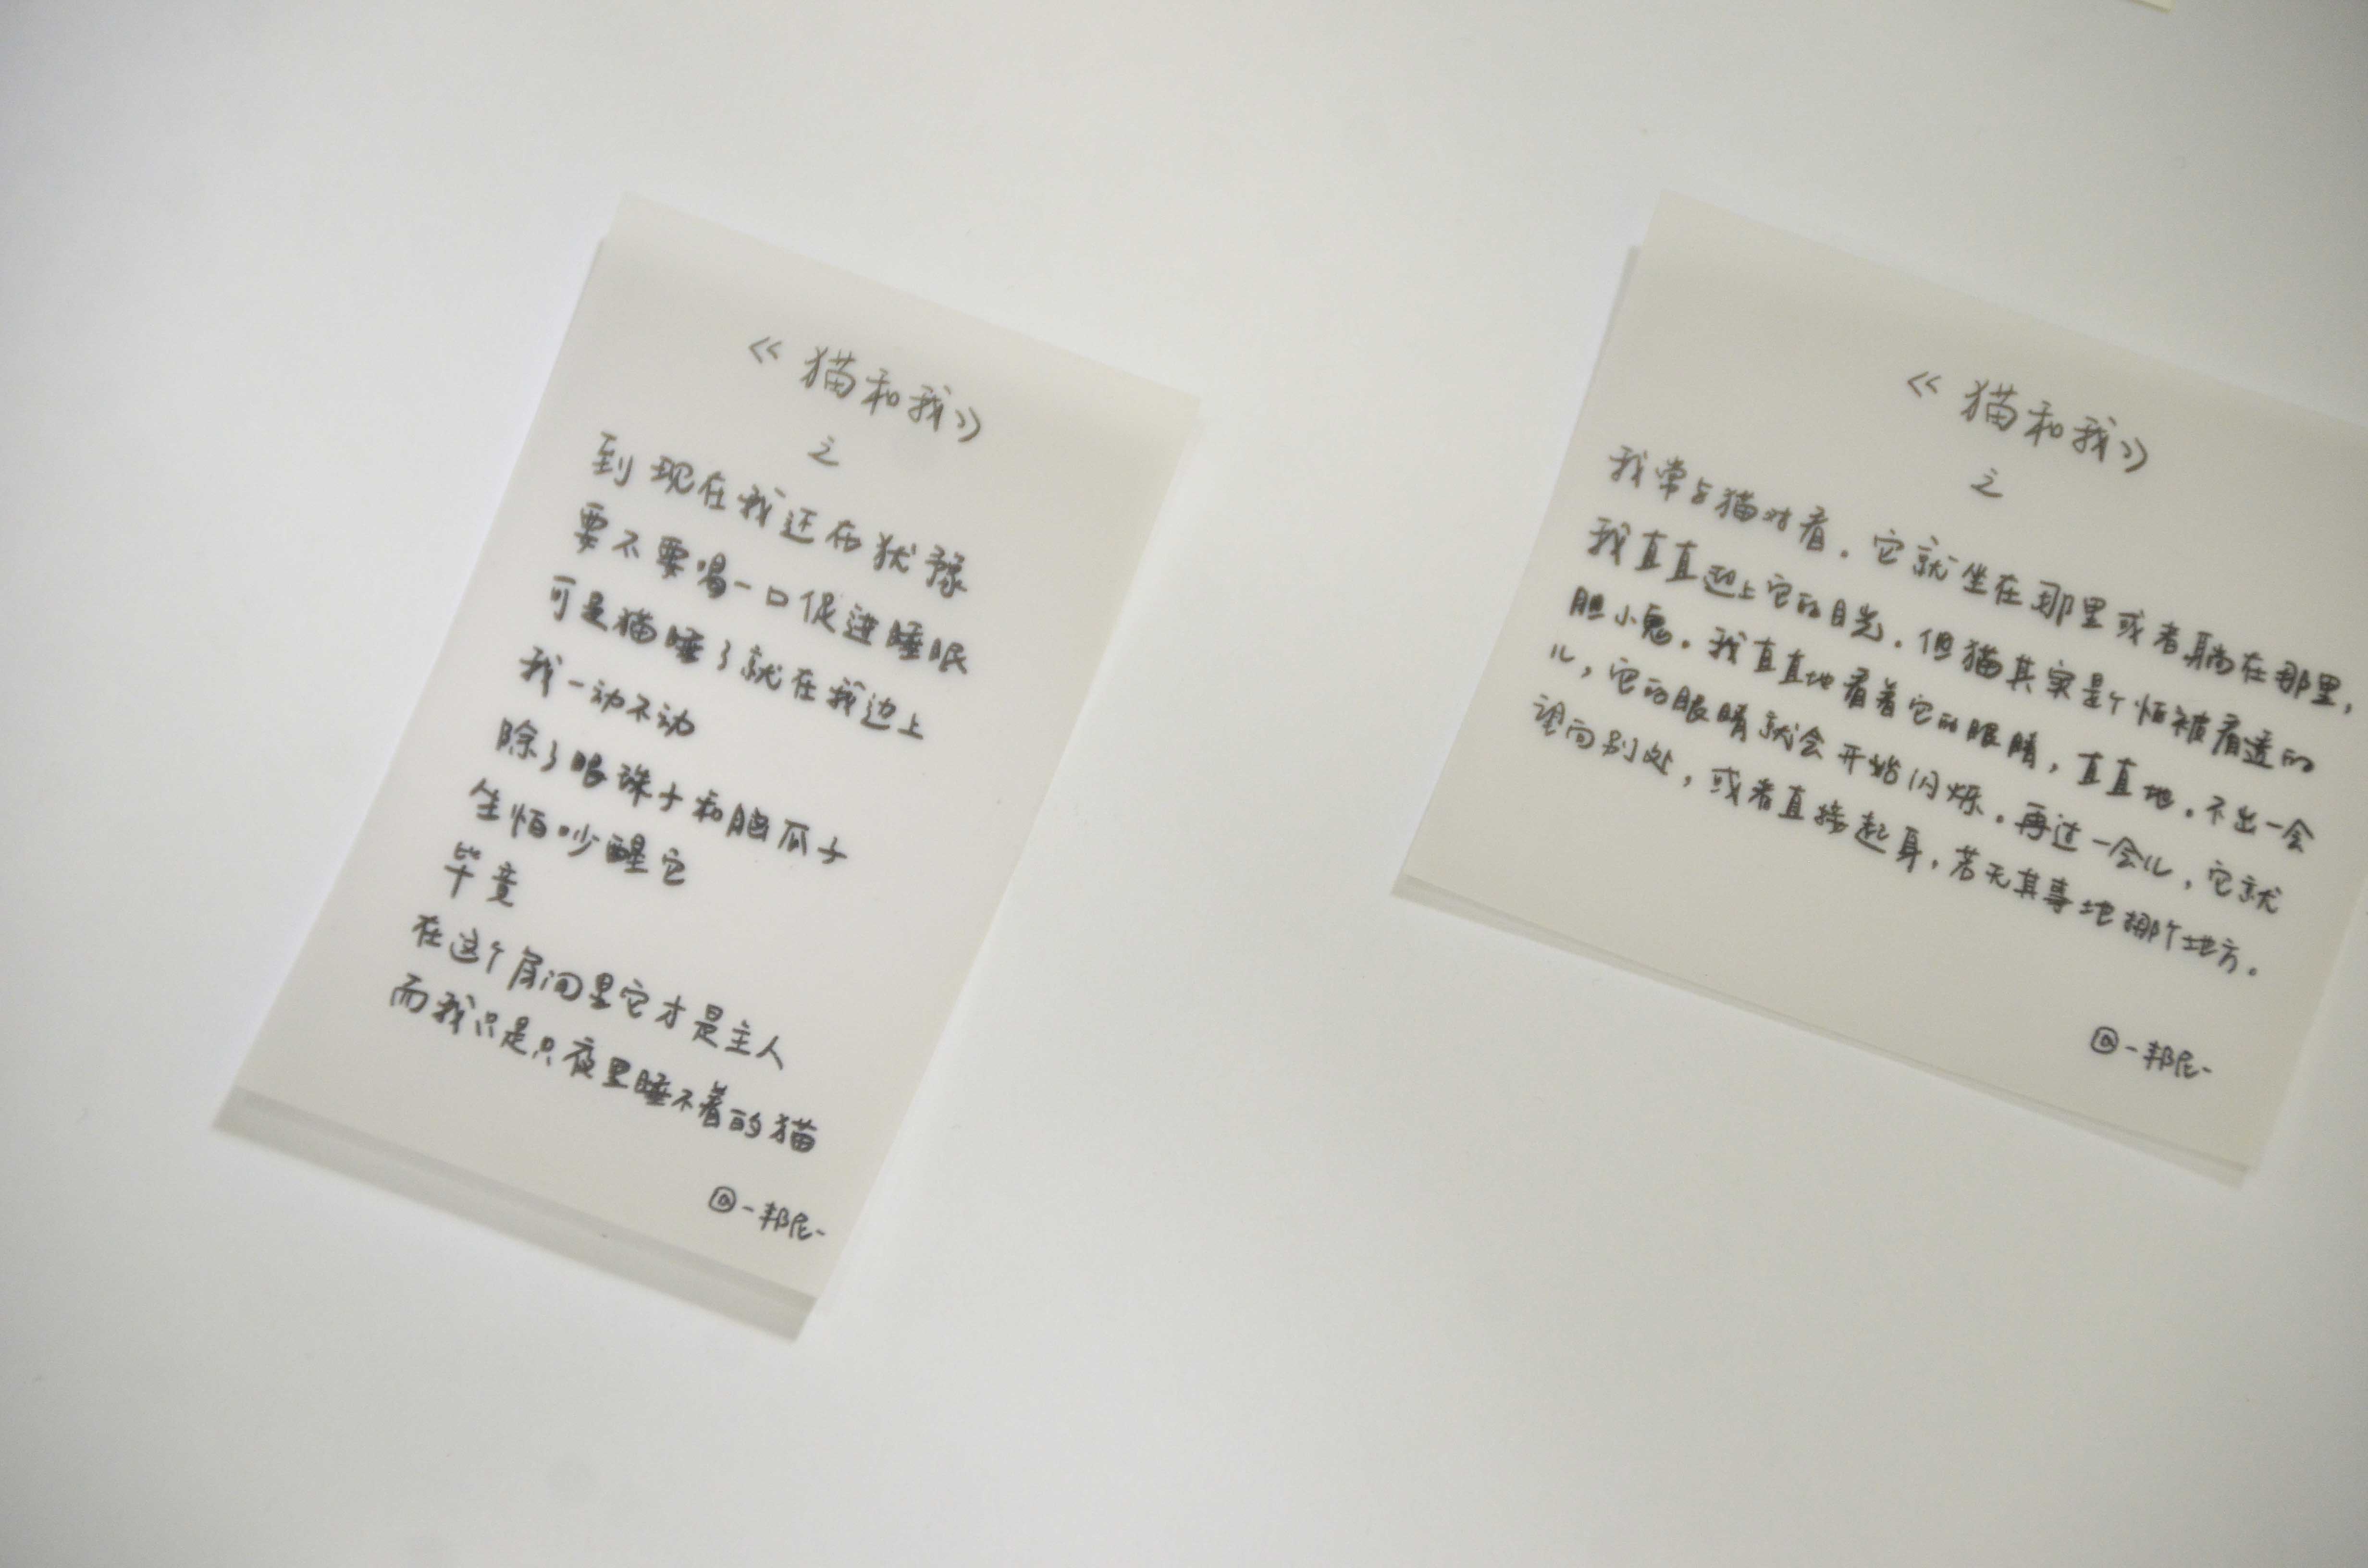 《猫和我》
之
到现在我还在犹豫
要不要喝一口促进睡眠
可是猫睡了就在我边上
我一动不动
除了眼珠子和脑瓜子
生怕吵醒它
毕竟
在这个房间里它才是主人
而我只是只夜里睡不着的猫
@-邦尼-
《猫和我》
之
我常与猫对看。它就坐在那里或者躺在那里,
我直直迎上它的目光。但猫其实是个怕被看透的
胆小鬼。我直直地看着它的眼睛,直直地。不出一会
儿,它的眼睛就会开始闪烁。再过一会儿,它就
望向别处,或者直接起身,若无其事地挪个地方。
@-邦尼-